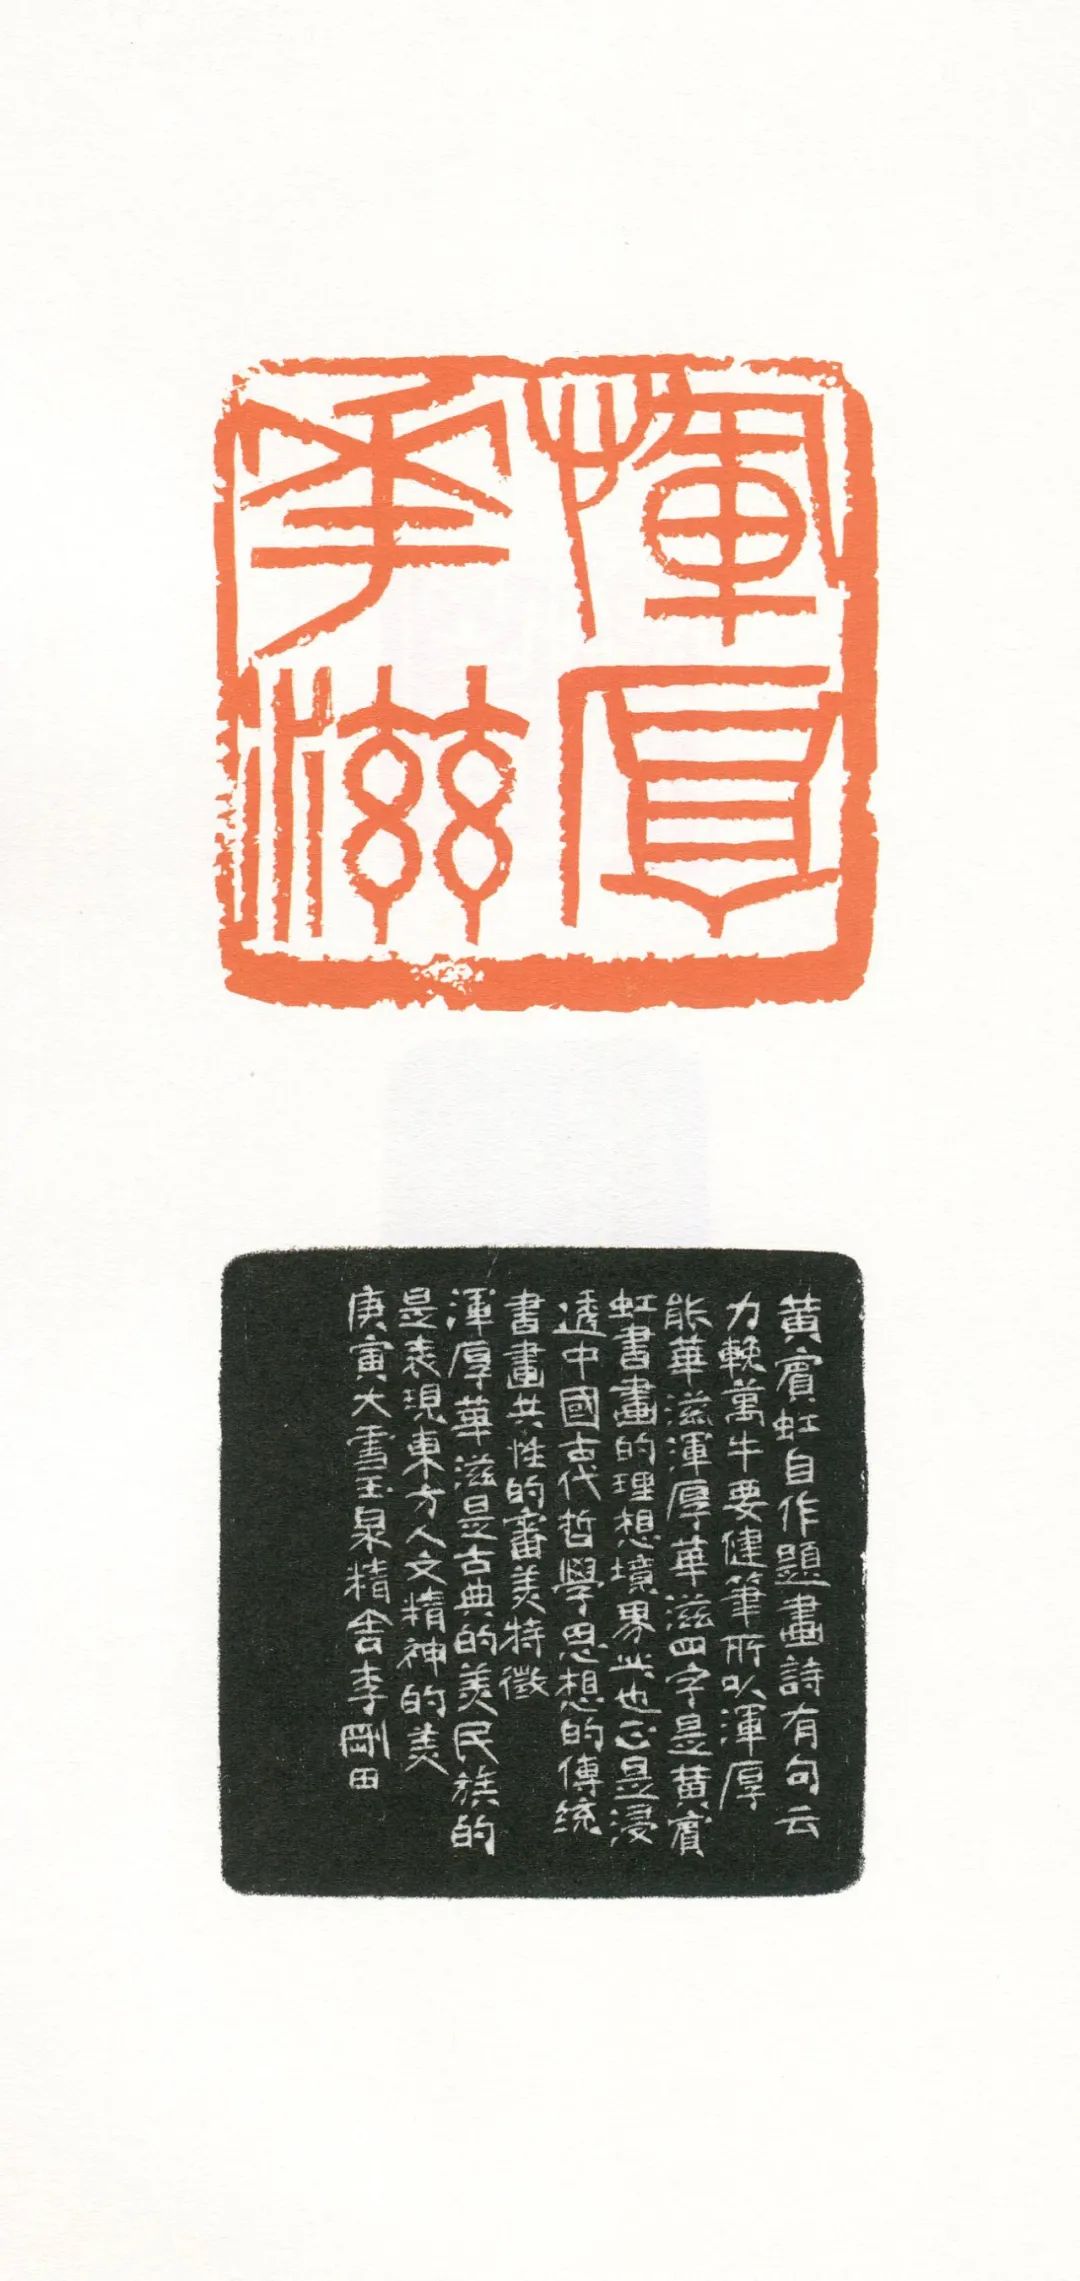 渾厚
華滋
黃賓虹自作題畫詩有句云
力輓萬牛要健筆所以渾厚
能華滋渾厚華滋四字是黃賓
虹書畫的理想境界此也正是浸
透中國古代哲學思想的傳統
書畫共性的審美特徵
渾厚華滋是古典的美民族的
是表現東方人文精神的美
庚寅大雪玉泉精舍李剛田